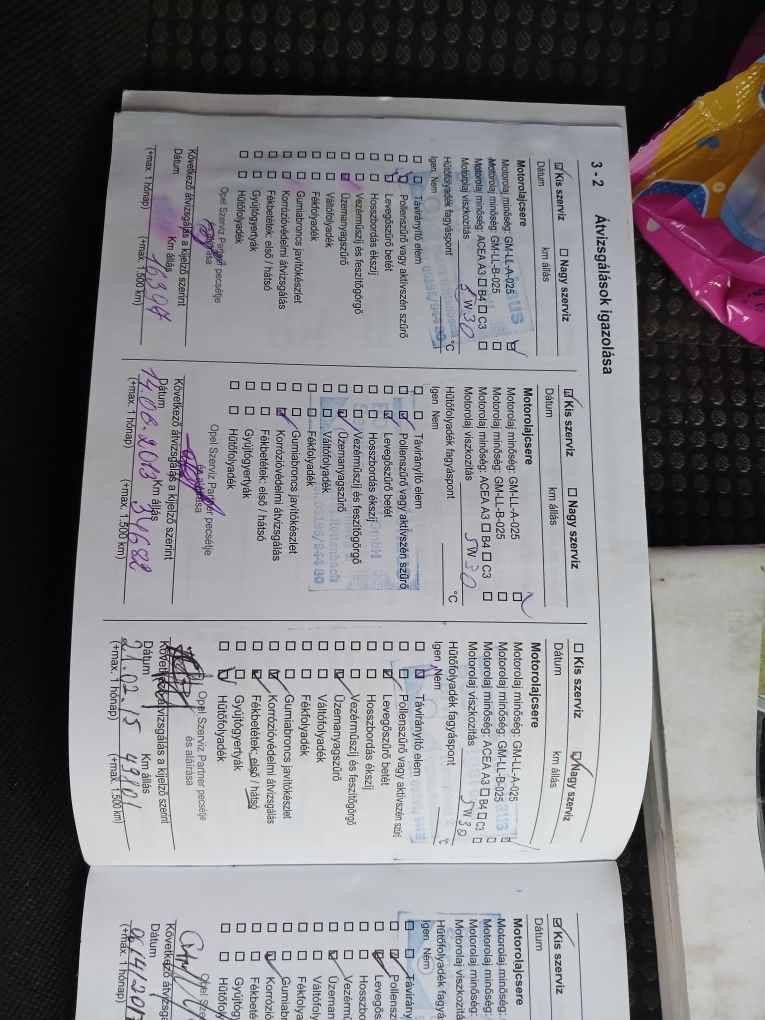 3 - 2 Átvizsgálások igazolása
Kis szerviz Nagy szerviz
Dátum km állás
Motorolajcsere
Motorolaj minőség: GM-LL-A-025
Motorolaj minőség: GM-LL-B-025
Motorolaj minőség: ACEA A3 B4 C3
Motorolaj viszkozitás 5W30
Hűtőfolyadék fagyáspont °C
Igen Nem
Távirányító elem
Pollenszűrő vagy aktívszén szűrő
Levegőszűrő betét
Hosszbordás ékszíj
Vezérműszíj és feszítőgörgő
Üzemanyagszűrő
Váltófolyadék
Fékfolyadék
Gumiabroncs javítókészlet
Korrózióvédelmi átvizsgálás
Fékbetétek: első / hátsó
Gyújtógyertyák
Hűtőfolyadék
Opel Szerviz Partner pecsétje
és aláírása
Következő átvizsgálás a kijelző szerint
Dátum Km állás
(+max. 1 hónap) (+max. 1.500 km)
Kis szerviz Nagy szerviz
Dátum km állás
Motorolajcsere
Motorolaj minőség: GM-LL-A-025
Motorolaj minőség: GM-LL-B-025
Motorolaj minőség: ACEA A3 B4 C3
Motorolaj viszkozitás 5W30
Hűtőfolyadék fagyáspont °C
Igen Nem
Távirányító elem
Pollenszűrő vagy aktívszén szűrő
Levegőszűrő betét
Hosszbordás ékszíj
Vezérműszíj és feszítőgörgő
Üzemanyagszűrő
Váltófolyadék
Fékfolyadék
Gumiabroncs javítókészlet
Korrózióvédelmi átvizsgálás
Fékbetétek: első / hátsó
Gyújtógyertyák
Hűtőfolyadék
Opel Szerviz Partner pecsétje
és aláírása
Következő átvizsgálás a kijelző szerint
Dátum Km állás
14.08.2013 34682
(+max. 1 hónap) (+max. 1.500 km)
Kis szerviz Nagy szerviz
Dátum km állás
Motorolajcsere
Motorolaj minőség: GM-LL-A-025
Motorolaj minőség: GM-LL-B-025
Motorolaj minőség: ACEA A3 B4 C3
Motorolaj viszkozitás 5W30
Hűtőfolyadék fagyáspont °C
Igen Nem
Távirányító elem
Pollenszűrő vagy aktívszén szűrő
Levegőszűrő betét
Hosszbordás ékszíj
Vezérműszíj és feszítőgörgő
Üzemanyagszűrő
Váltófolyadék
Fékfolyadék
Gumiabroncs javítókészlet
Korrózióvédelmi átvizsgálás
Fékbetétek: első / hátsó
Gyújtógyertyák
Hűtőfolyadék
Opel Szerviz Partner pecsétje
és aláírása
Következő átvizsgálás a kijelző szerint
Dátum Km állás
21.02.15 49801
(+max. 1 hónap) (+max. 1.500 km)
Kis szerviz
Dátum
Motorolajcsere
Motorolaj minőség:
Motorolaj minőség:
Motorolaj minőség:
Motorolaj viszkozitá
Hűtőfolyadék fagyás
Igen Nem
Távirány
Pollensz
Levegős
Hosszbo
Vezérmű
Üzeman
Váltófoly
Fékfolya
Gumiab
Korrózió
Fékbeté
Gyújtógy
Hűtőfoly
Opel Sze
Következő átvizsgá
Dátum
(+max. 1 hónap)